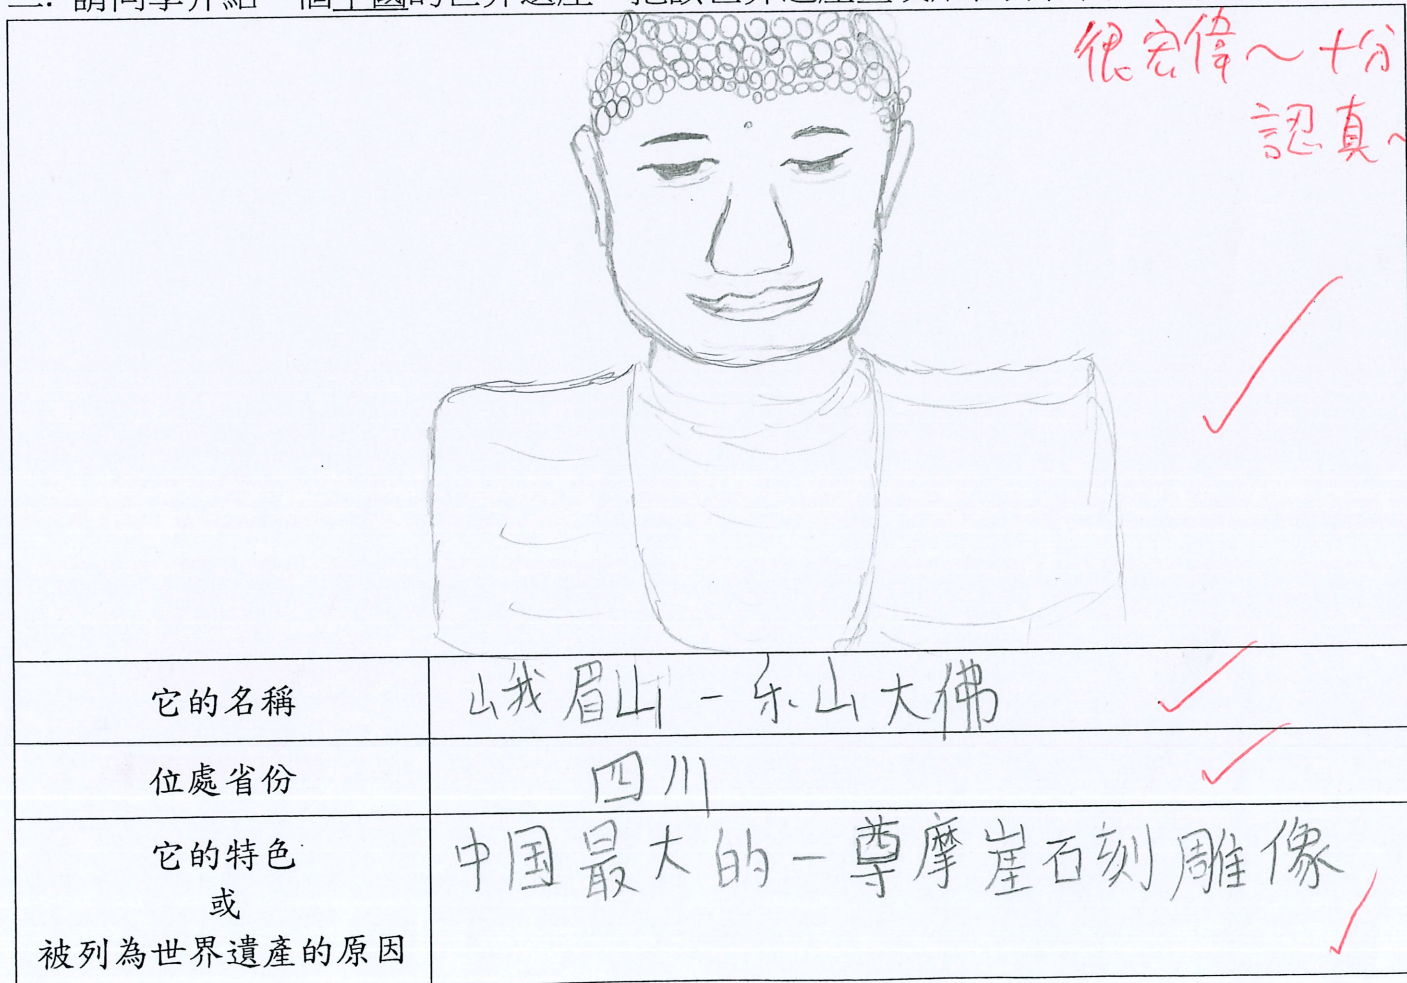 很宏偉～十分
認真～
它的名稱
峨眉山－乐山大佛
位處省份
四川
它的特色
或
被列為世界遺產的原因
中国最大的一尊摩崖石刻雕像